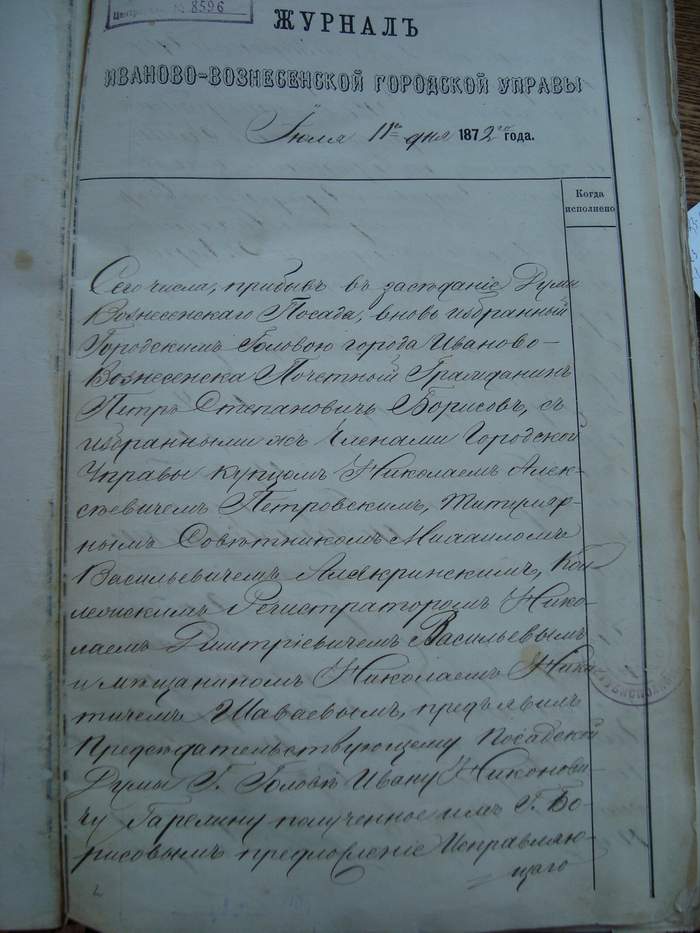 8596
ЖУРНАЛЪ
ИВАНОВО-ВОЗНЕСЕНСКОЙ ГОРОДСКОЙ УПРАВЫ
Іюля 11го дня 1872го года.
Когда
исполнено
Сего числа, прибывъ въ засѣданіе Думы
Вознесенскаго Посада, вновь избранный
Городскимъ Головою города Иваново-
Вознесенска Почетный Гражданинъ
Петръ Степановичъ Борисовъ, съ
избранными жъ Членами Городской
Управы купцомъ Николаемъ Алек-
сѣевичемъ Петровскимъ, Титуляр-
нымъ Совѣтникомъ Михаиломъ
Васильевичемъ Алякринскимъ, Кол-
лежскимъ Регистраторомъ Нико-
лаемъ Дмитріевичемъ Васильевымъ
и мѣщаниномъ Николаемъ Ники-
тичемъ Шаваевымъ, предъявилъ
Предсѣдательствующему Посадской
Думы Г. Головѣ Ивану Никонови-
чу Гарелину полученное имъ Г. Бо-
рисовымъ предложеніе Исправляю-
щаго